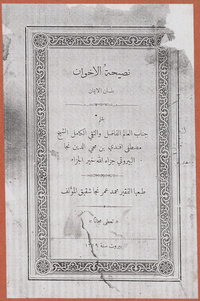 نصيحة الاخوان
بلسان الايمان
بقلم
جناب العالم الفاضل والتقي الكامل الشيخ
مصطفى افندي بن محي الدين نجا
البيروتي جزاه الله خير الجزاء
طبعها الفقير محمد عمر نجا شقيق المؤلف
« تعطى مجانا »
بيروت سنة